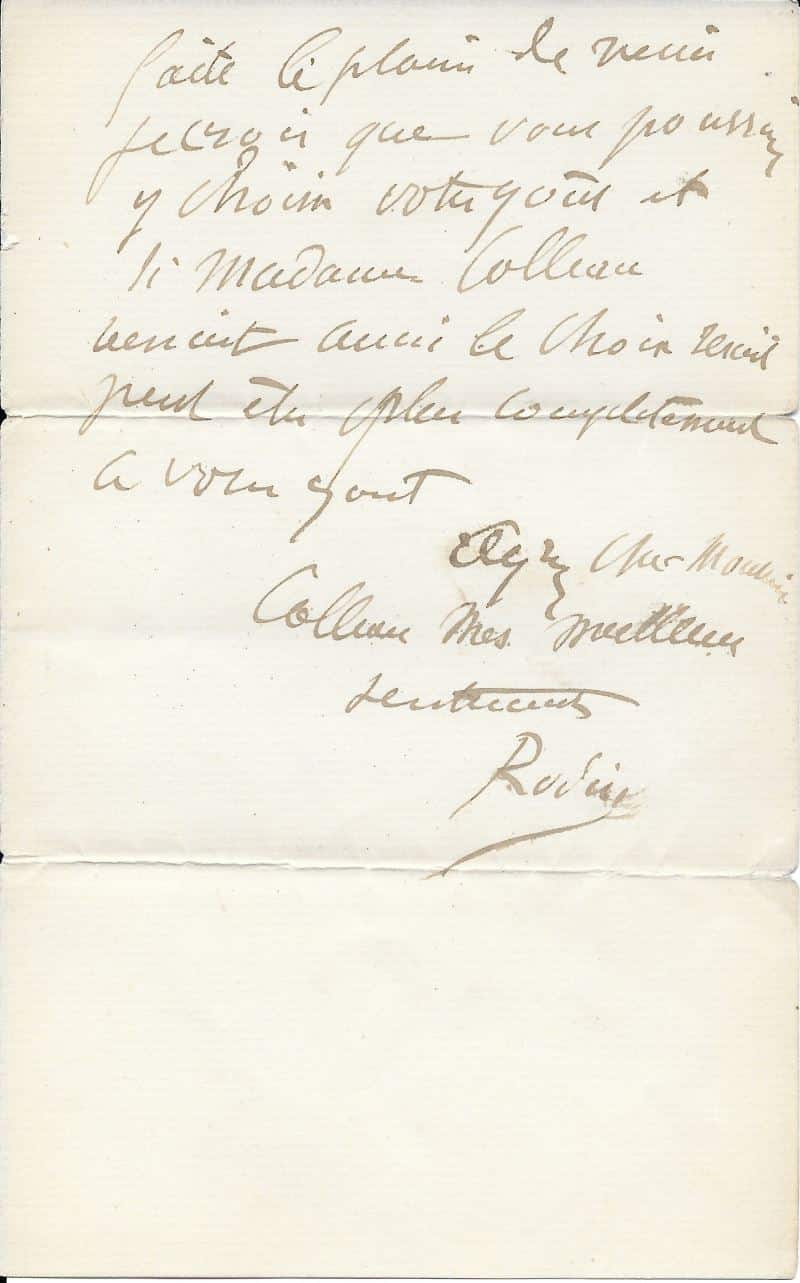 faite le plaisir de venir
je crois que vous pourriez
y choisir votre goût et
si Madame Colleau
venait aussi le choix serait
peut être plus completement
a votre gout
Agréez cher Monsieur
Colleau mes meilleurs
sentiments
Rodin